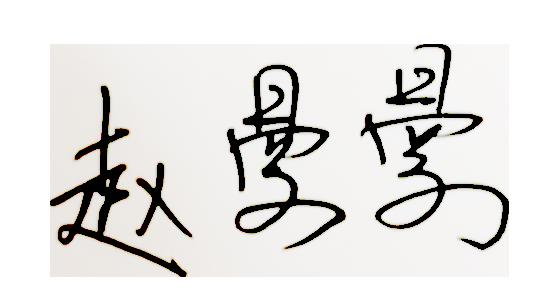 赵曼曼